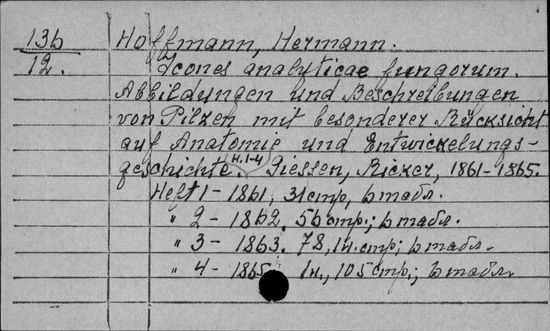 136
12.
Hoffmann, Hermann.
Icones analyticae fungorum.
Abbildungen und Beschreibungen
von Pilzen mit besonderer Rücksicht
auf Anatomie und Entwickelungs-
geschichte. H.1-4 Giessen, Ricker, 1861-1865.
Heft 1 - 1861, 31 стр, 6 табл.
" 2 - 1862. 56 стр.; 6 табл.
" 3 - 1863. 78, 1н.стр; 6 табл.
" 4 - 1865 1н., 105 стр.; 6 табл.